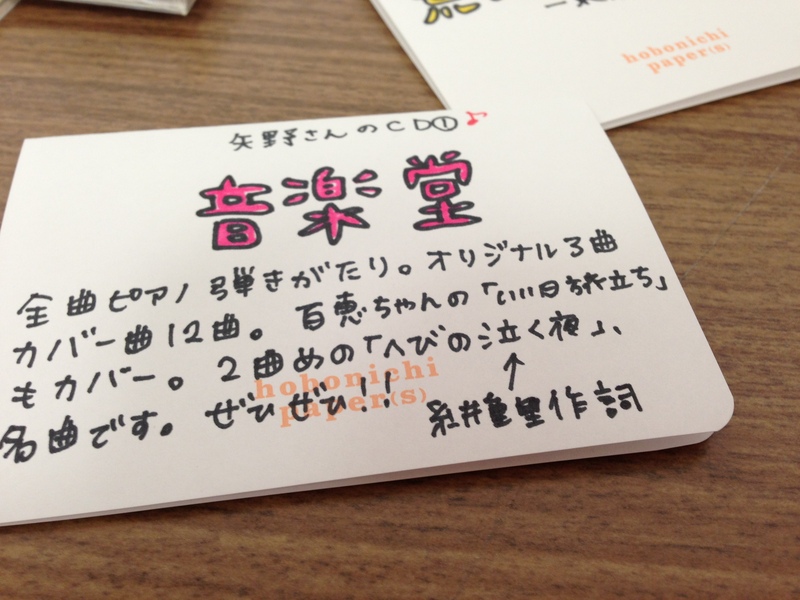 hobonichi
paper(s)
矢野さんのCD①♪
音楽堂
全曲ピアノ弾きがたり。オリジナル3曲
カバー曲12曲。百恵ちゃんの「いい日旅立ち」
もカバー。2曲めの「へびの泣く夜」、
名曲です。ぜひぜひ!!
↑
糸井重里作詞
hobonichi
paper(s)